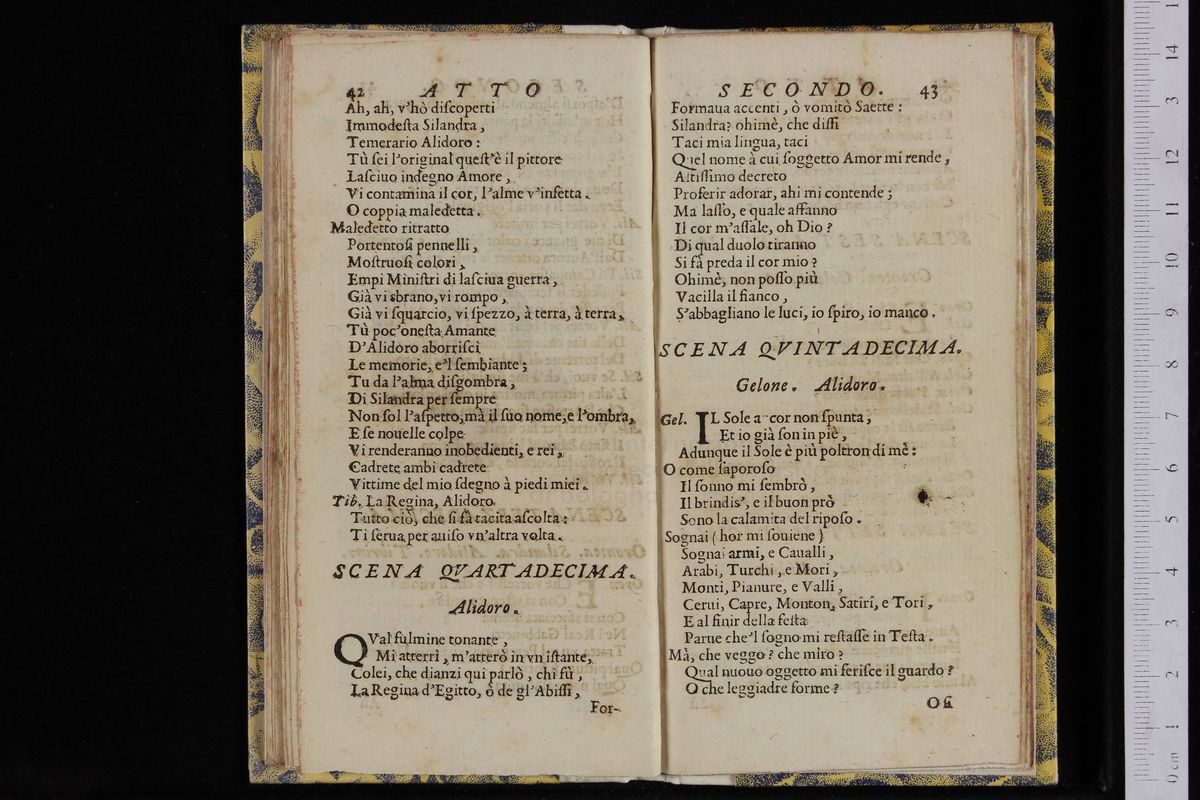 42 ATTO
Ah, ah, v'hò diſcoperti
Immodeſta Silandra,
Temerario Alidoro:
Tù ſei l'original queſt'è il pittore
Laſciuo indegno Amore,
Vi contamina il cor, l'alme v'infetta.
O coppia maledetta.
Maledetto ritratto
Portentoſi pennelli,
Moſtruoſi colori,
Empi Miniſtri di laſciua guerra,
Già vi sbrano, vi rompo,
Già vi ſquarcio, vi ſpezzo, à terra, à terra,
Tù poc'oneſta Amante
D'Alidoro aborriſci
Le memorie, e'l ſembiante;
Tu da l'alma diſgombra,
Di Silandra per ſempre
Non ſol l'aſpetto, mà il ſuo nome, e l'ombra,
E ſe nouelle colpe
Vi renderanno inobedienti, e rei,
Cadrete ambi cadrete
Vittime del mio ſdegno à piedi miei.
Tib. La Regina, Alidoro.
Tutto ciò, che ſi fà tacita aſcolta:
Ti ſerua per auiſo vn'altra volta.
SCENA QVARTADECIMA.
Alidoro.
QVal fulmine tonante,
Mi atterrì, m'atterò in vn iſtante,
Colei, che dianzi qui parlò, chi fù,
La Regina d'Egitto, ò de gl'Abiſſi,
For-
SECONDO. 43
Formaua accenti, ò vomitò Saette:
Silandra? ohimè, che diſſi
Taci mia lingua, taci
Quel nome à cui ſoggetto Amor mi rende,
Altiſſimo decreto
Proferir adorar, ahi mi contende;
Ma laſſo, e quale affanno
Il cor m'aſſale, oh Dio?
Di qual duolo tiranno
Si fà preda il cor mio?
Ohimè, non poſſo più
Vacilla il fianco,
S'abbagliano le luci, io ſpiro, io manco.
SCENA QVINTADECIMA.
Gelone. Alidoro.
Gel. IL Sole a cor non ſpunta,
Et io già ſon in piè,
Adunque il Sole è più poltron di mè:
O come ſaporoſo
Il ſonno mi ſembrò,
Il brindis', e il buon prò
Sono la calamita del ripoſo.
Sognai (hor mi ſouiene)
Sognai armi, e Caualli,
Arabi, Turchi, e Mori,
Monti, Pianure, e Valli,
Cerui, Capre, Monton, Satiri, e Tori,
E al finir della feſta
Parue che'l ſogno mi reſtaſſe in Teſta.
Mà, che veggo? che miro?
Qual nuouo oggetto mi feriſce il guardo?
O che leggiadre forme?